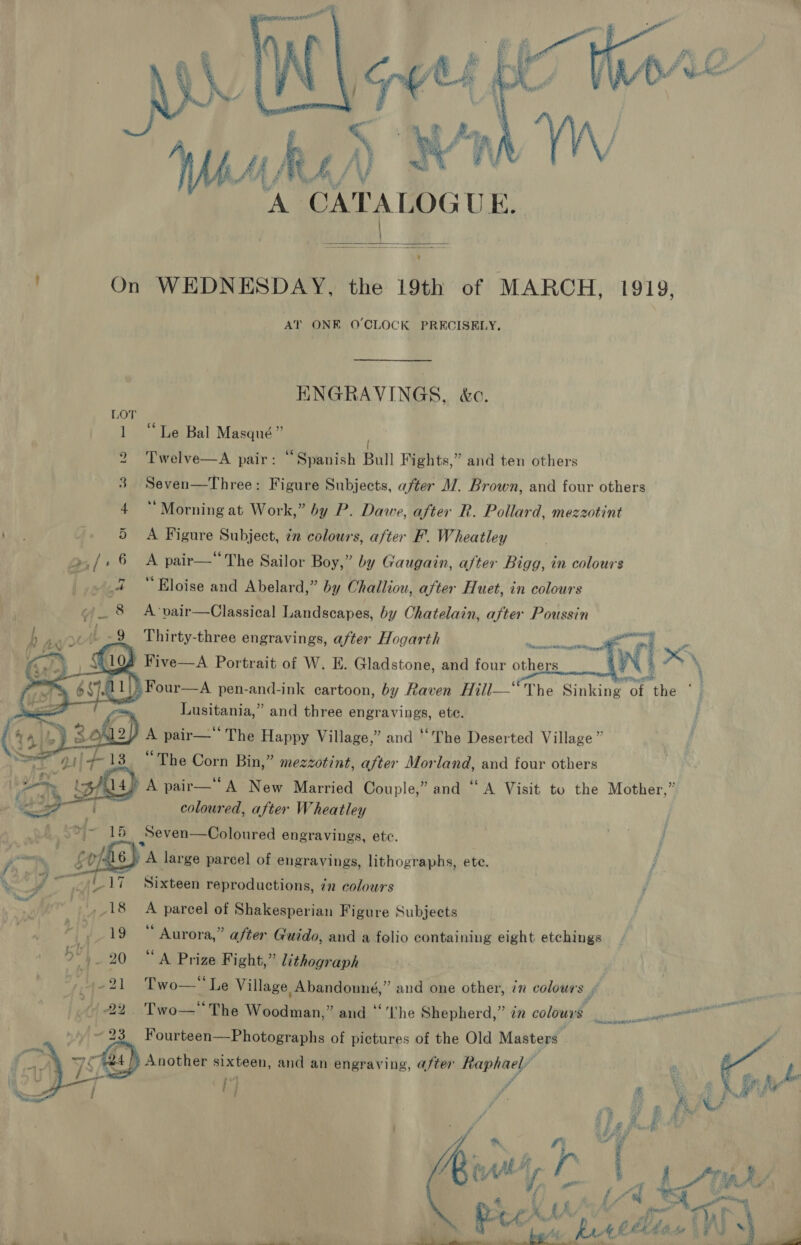 All [W] except those
marked with W
A CATALOGUE.
On WEDNESDAY, the 19th of MARCH, 1919,
AT ONE O'CLOCK PRECISELY.
ENGRAVINGS, &c.
LOT
1 “Le Bal Masqué”
2 Twelve—A pair: “Spanish Bull Fights,” and ten others
3 Seven—Three: Figure Subjects, after M. Brown, and four others
4 “Morning at Work,” by P. Dawe, after R. Pollard, mezzotint
5 A Figure Subject, in colours, after F. Wheatley
6 A pair—“The Sailor Boy,” by Gaugain, after Bigg, in colours
7 “Eloise and Abelard,” by Challiou, after Huet, in colours
8 A pair—Classical Landscapes, by Chatelain, after Poussin
9 Thirty-three engravings, after Hogarth
10 Five—A Portrait of W. E. Gladstone, and four others [W] X
11 Four—A pen-and-ink cartoon, by Raven Hill—“The Sinking of the
Lusitania,” and three engravings, etc.
12 A pair—“The Happy Village,” and “The Deserted Village”
13 “The Corn Bin,” mezzotint, after Morland, and four others
14 A pair—“A New Married Couple,” and “A Visit to the Mother,”
coloured, after Wheatley
15 Seven—Coloured engravings, etc.
16 A large parcel of engravings, lithographs, etc.
17 Sixteen reproductions, in colours
18 A parcel of Shakesperian Figure Subjects
19 “Aurora,” after Guido, and a folio containing eight etchings
20 “A Prize Fight,” lithograph
21 Two—“Le Village Abandonné,” and one other, in colours
22 Two—“The Woodman,” and “The Shepherd,” in colours
23 Fourteen—Photographs of pictures of the Old Masters
24 Another sixteen, and an engraving, after Raphael